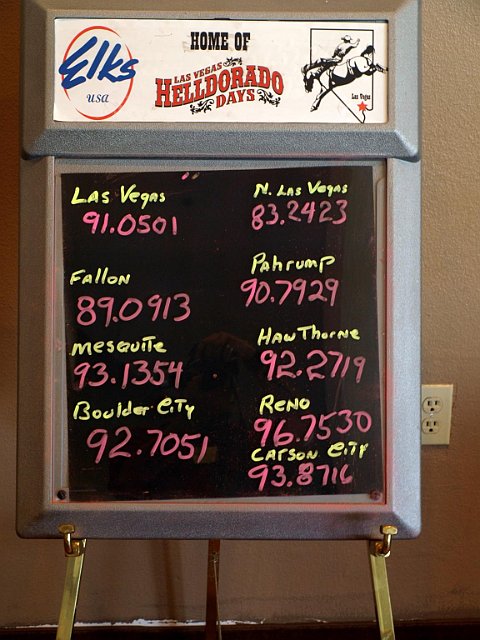 Elks
usa
HOME OF
LAS VEGAS
HELLDORADO
DAYS
Las Vegas
Las Vegas
91.0501
N. Las Vegas
83.2423
Fallon
89.0913
Pahrump
90.7929
mesquite
93.1354
HawThorne
92.2719
Boulder City
92.7051
Reno
96.7530
Carson City
93.8716